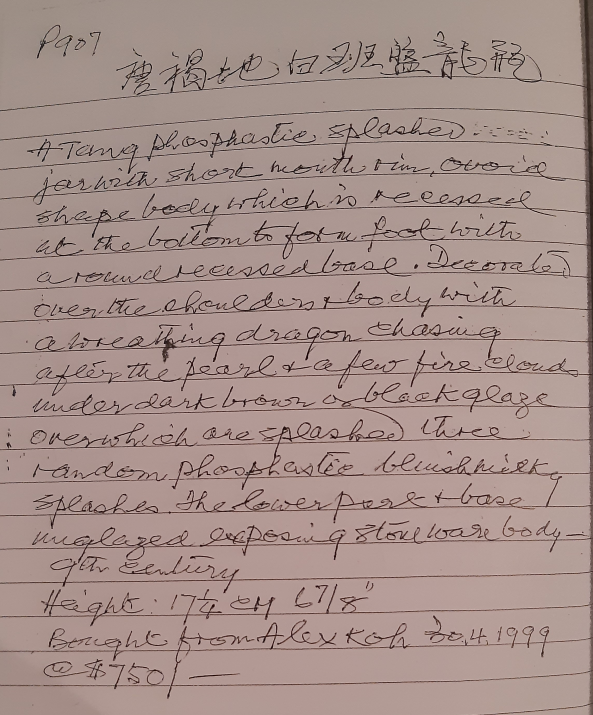 P907
唐褐地白班盤龍瓶
A Tang phosphastic splashed
jar with short mouth rim, ovoid
shape body which is recessed
at the bottom to form foot with
a round recessed base. Decorated
over the shoulders & body with
a wreathing dragon chasing
after the pearl & a few fire clouds
under dark brown or black glaze
over which are splashed three
random phosphastic bluish milky
splashes. The lower part & base
unglazed exposing stoneware body —
9th century
Height: 17¼ cm 6 7/8"
Bought from Alex Koh 30.4.1999
@ $750/—